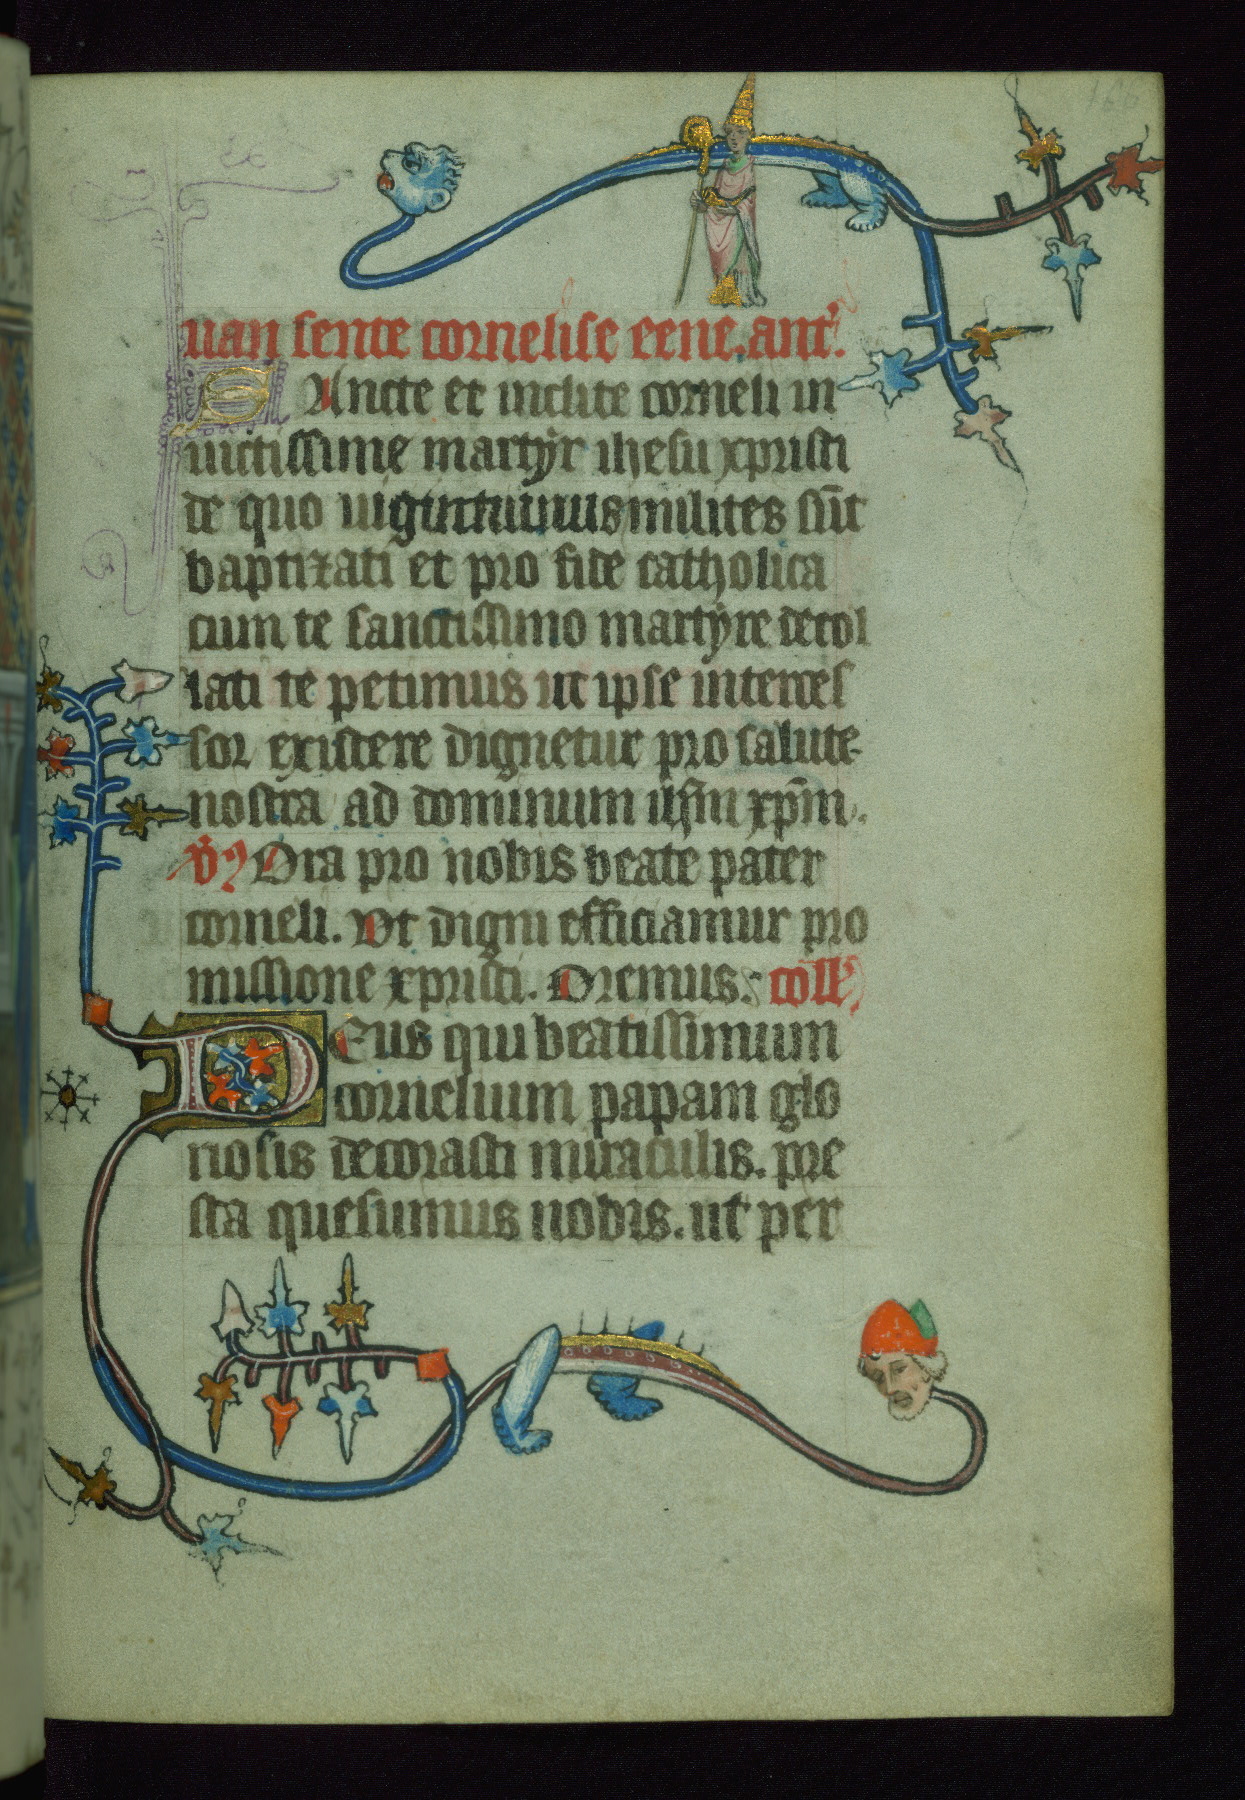 uan sente cornelise eene. ant'.
SAncte et inclite corneli in
uictissime martyr ihesu xpristi
de quo uigintiunus milites sūt
baptizati et pro fide catholica
cum te sanctissimo martyre decol
lati te petimus ut ipse interces
sor existere dignetur pro salute
nostra ad dominum ihm̄ xp̄m.
Ora pro nobis beate pater
corneli. Vt digni efficiamur pro
missione xpristi. Oremus. coll'
DEus qui beatissimum
cornelium papam glo
riosis decorasti miraculis. pre
sta quesumus nobis. ut per